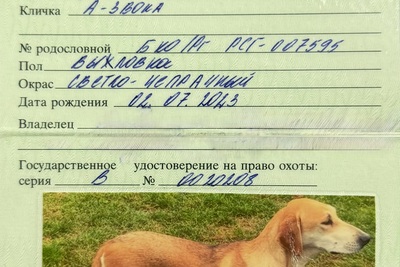 Кличка А-ЗВОНА
№ родословной БКО/РГ РСГ-007595
Пол ВЫЖЛОВКА
Окрас СВЕТЛО-ЧЕПРАЧНЫЙ
Дата рождения 02.07.2023
Владелец
Государственное удостоверение на право охоты:
серия В № 0020208